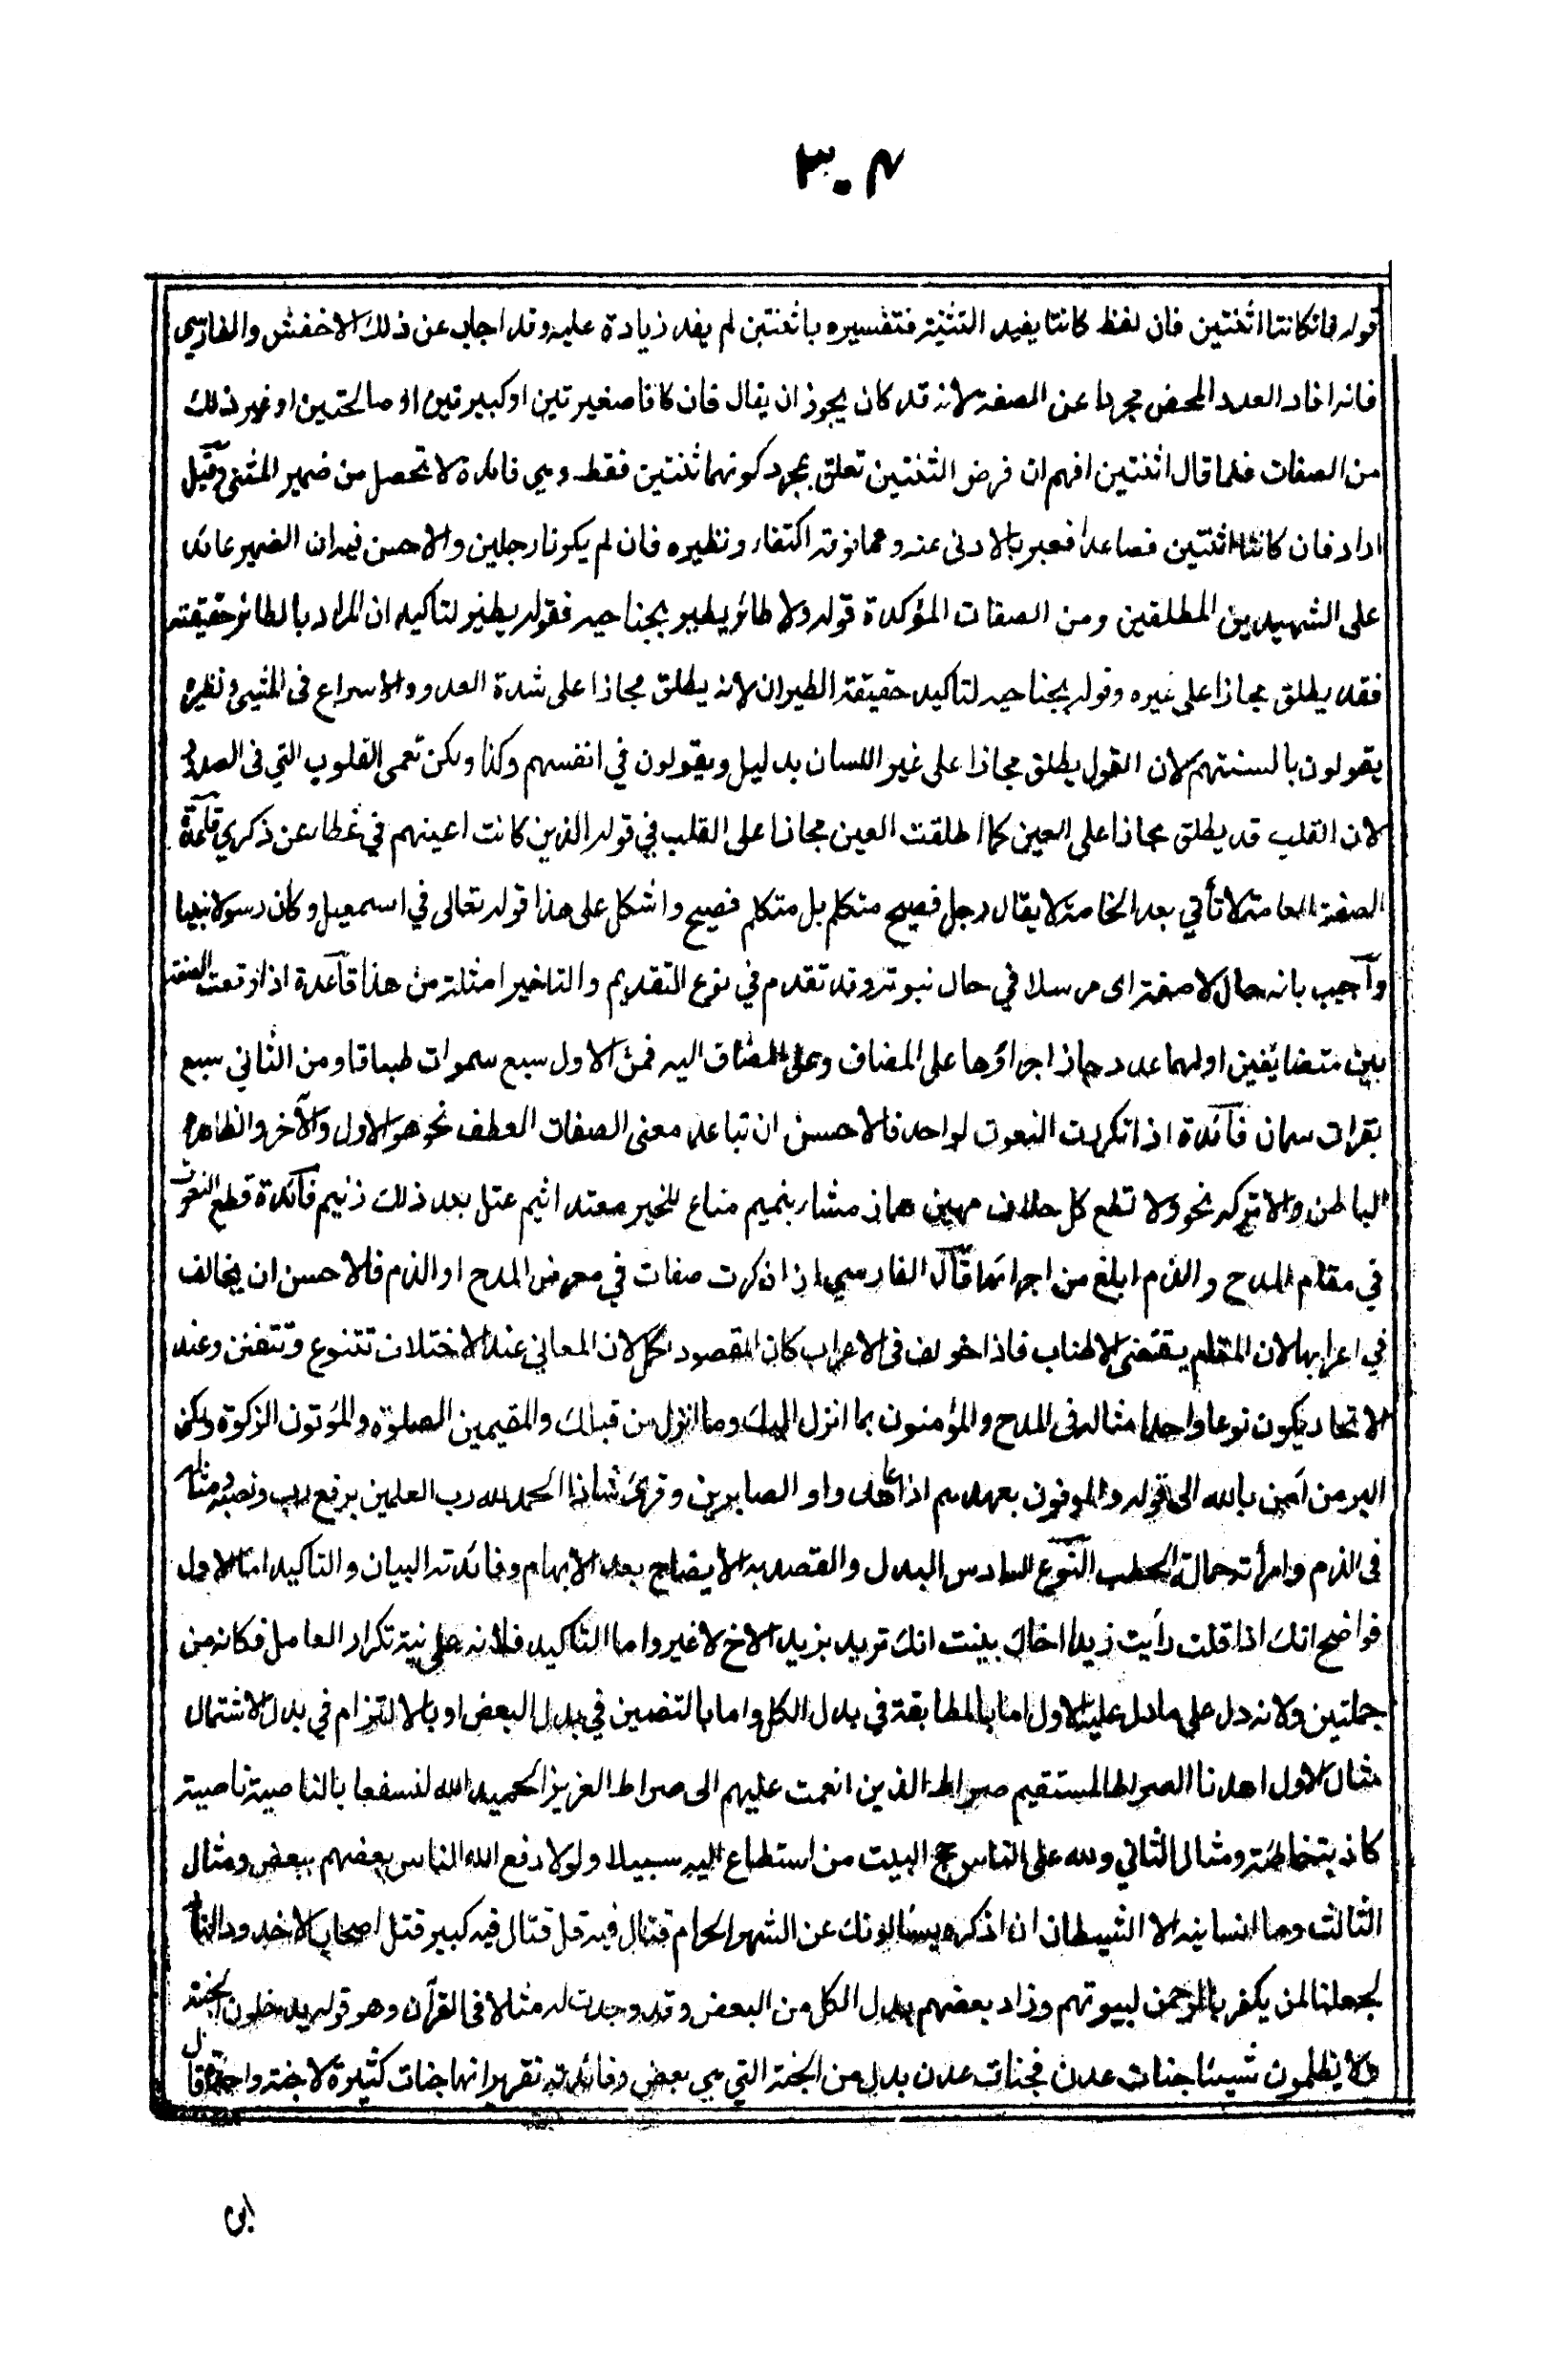 ٣٠٤
قوله فان كانتا اثنتين فان لفظ كانتا يفيد التثنية فتفسيره باثنتين لم يفد زيادة عليه وقد اجاب عن ذلك الاخفش والفارسي
فانه افاد العدد المحض مجردا عن الصفة لانه قد كان يجوز ان يقال فان كانتا صغيرتين او كبيرتين او صالحتين او غير ذلك
من الصفات فلما قال اثنتين افهم ان فرض الثنتين تعلق بمجرد كونهما ثنتين فقط وهي فائدة لا تحصل من ضمير المثنى وقيل
اراد فان كانتا اثنتين فصاعدا فعبر بالادنى عنه وعما فوقه اكتفاء ونظيره فان لم يكونا رجلين والاحسن فيه ان الضمير عائد
على الشهيدين المطلقين ومن الصفات المؤكدة قوله ولا طائر يطير بجناحيه فقوله يطير لتاكيد ان المراد بالطائر حقيقته
فقد يطلق مجازا على غيره وقوله بجناحيه لتاكيد حقيقة الطيران لانه يطلق مجازا على شدة العدو والاسراع فى المشي ونظيره
يقولون بالسنتهم لان القول يطلق مجازا على غير اللسان بدليل ويقولون في انفسهم وكذا ولكن تعمى القلوب التي فى الصدور
لان القلب قد يطلق مجازا على العين كما اطلقت العين مجازا على القلب في قوله الذين كانت اعينهم في غطاء عن ذكري قاعدة
الصفة العامة لا تأتي بعد الخاصة لا يقال رجل فصيح متكلم بل متكلم فصيح واشكل على هذا قوله تعالى في اسمعيل وكان رسولا نبيا
وأجيب بانه حال لا صفة اى مرسلا في حال نبوته وقد تقدم في نوع التقديم والتاخير امثلة من هذا قاعدة اذا وقعت الصفة
بين متضايفين اولهما عدد جاز اجراؤها على المضاف وعلى المضاف اليه فمن الاول سبع سموات طباقا ومن الثاني سبع
بقرات سمان فائدة اذا تكررت النعوت لواحد فالاحسن ان تباعد معنى الصفات العطف نحو هو الاول والآخر والظاهر و
الباطن والا تركه نحو ولا تطع كل حلاف مهين هماز مشاء بنميم مناع للخير معتد اثيم عتل بعد ذلك زنيم فائدة قطع النعوت
في مقام المدح والذم ابلغ من اجرائها قال الفارسي اذا ذكرت صفات في معرض المدح او الذم فالاحسن ان يخالف
في اعرابها لان المقام يقتضى الاطناب فاذا خولف فى الاعراب كان المقصود اكمل لان المعاني عند الاختلاف تتنوع وتتفنن وعند
الاتحاد يكون نوعا واحدا مثاله فى المدح والمؤمنون بما انزل اليك وما انزل من قبلك والمقيمين الصلوة والمؤتون الزكوة ولكن
البر من آمن بالله الى قوله والموفون بعهدهم اذا عاهدوا والصابرين وقرئ شاذا الحمد لله رب العلمين برفع رب ونصبه ومثاله
فى الذم وامرأته حمالة الحطب النوع السادس البدل والقصد به الايضاح بعد الابهام وفائدته البيان والتاكيد اما الاول
فواضح انك اذا قلت رأيت زيدا اخاك بينت انك تريد بزيد الاخ لا غير واما التاكيد فلانه على نية تكرار العامل فكانه من
جملتين ولانه دل على ما دل عليه الاول اما بالمطابقة في بدل الكل واما بالتضمين في بدل البعض او بالالتزام في بدل الاشتمال
مثال الاول اهدنا الصراط المستقيم صراط الذين انعمت عليهم الى صراط العزيز الحميد الله لنسفعا بالناصية ناصية
كاذبة خاطئة ومثال الثاني ولله على الناس حج البيت من استطاع اليه سبيلا ولولا دفع الله الناس بعضهم ببعض ومثال
الثالث وما انسانيه الا الشيطان ان اذكره يسئلونك عن الشهر الحرام قتال فيه قل قتال فيه كبير قتل اصحاب الاخدود النار
لجعلنا لمن يكفر بالرحمن لبيوتهم وزاد بعضهم بدل الكل من البعض وقد وجدت له مثالا فى القرآن وهو قوله يدخلون الجنة
ولا يظلمون شيئا جنات عدن فجنات عدن بدل من الجنة التي هي بعض وفائدته تقرير انها جنات كثيرة لا جنة واحدة قال
ابن